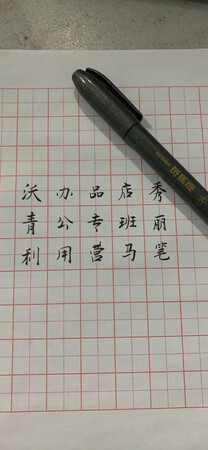 沃青利
办公用
品专营
店班马
秀丽笔